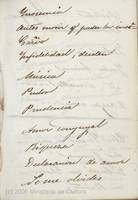 Inocencia
Antes morir q.e perder la inoc.
Cariño
Infidelidad, desden
Música
Pudor
Prudencia
Amor conyugal
Riqueza
Declaracion de amor
No me olvides
(c) 2006 Ministerio de Cultura